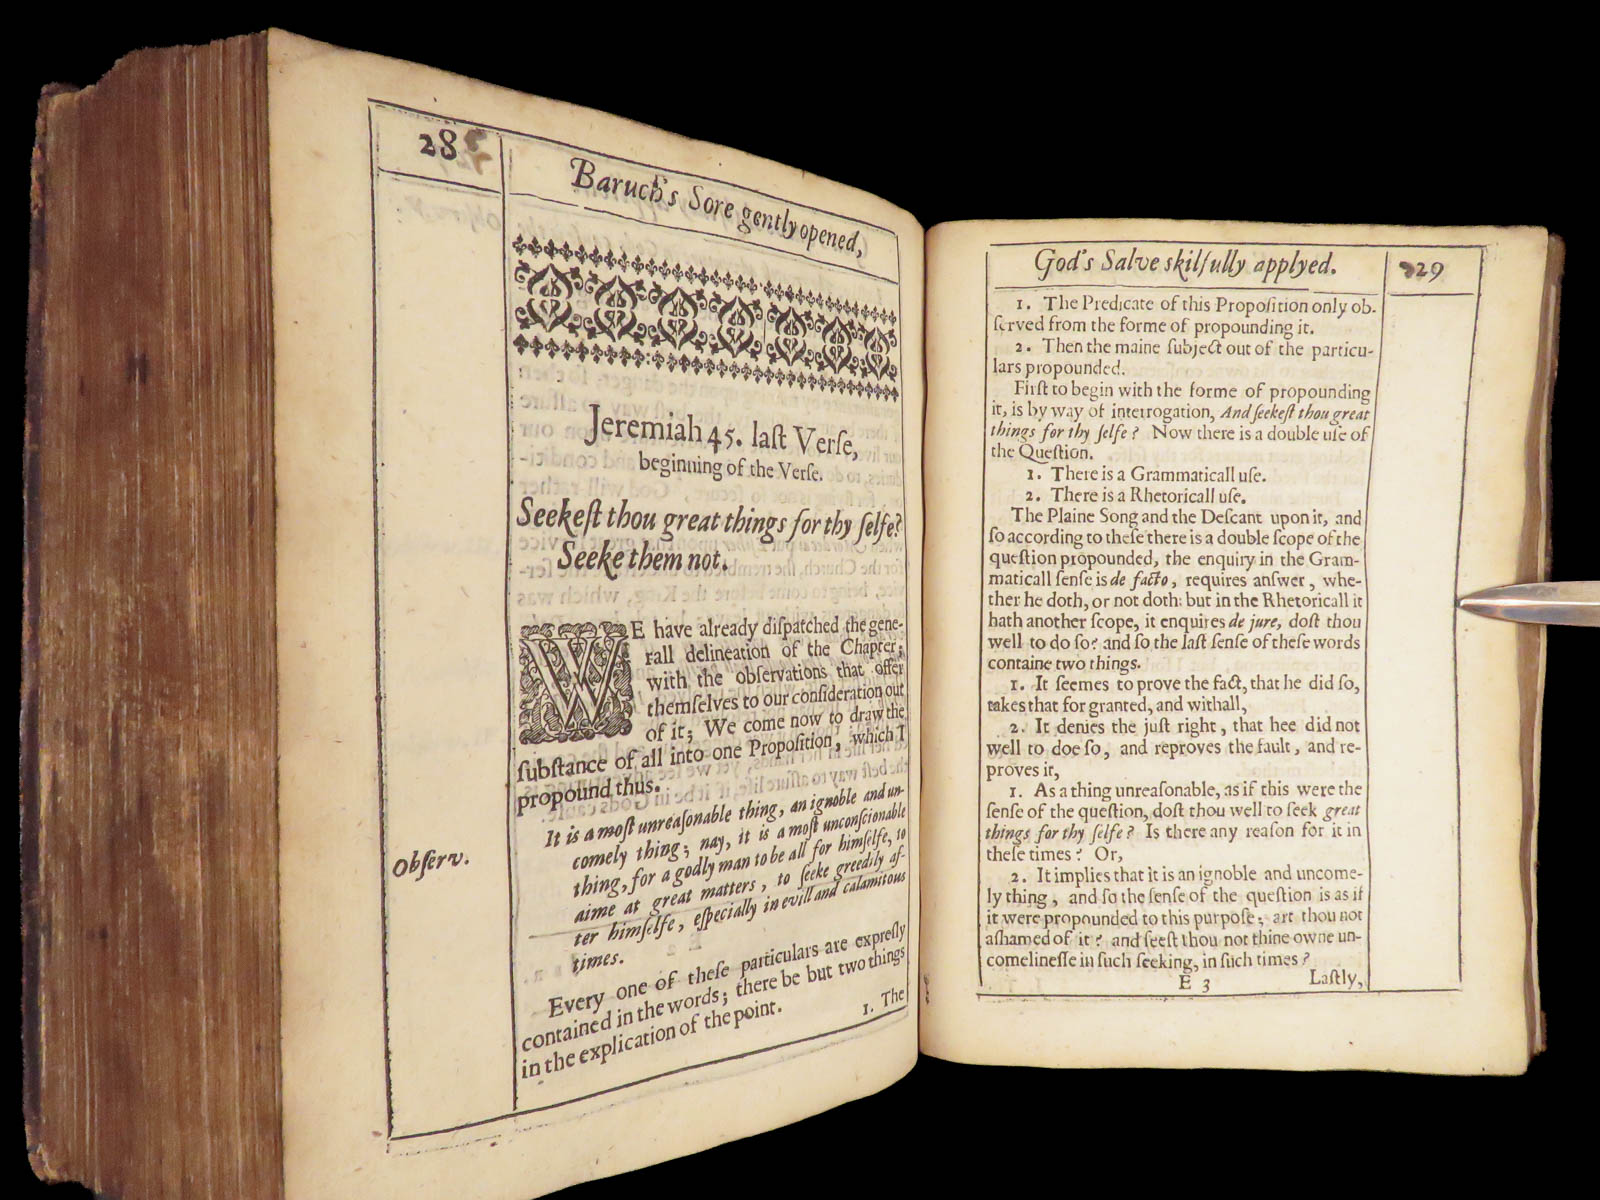 28
Baruch's Sore gently opened,
Jeremiah 45. laſt Verſe,
beginning of the Verſe.
Seekeſt thou great things for thy ſelfe?
Seeke them not.
WE have already diſpatched the gene-
rall delineation of the Chapter;
with the obſervations that offer
themſelves to our conſideration out
of it; We come now to draw the
ſubſtance of all into one Propoſition, which I
propound thus.
Obſerv.
It is a moſt unreaſonable thing, an ignoble and un-
comely thing; nay, it is a moſt unconſcionable
thing, for a godly man to be all for himſelfe, to
aime at great matters, to ſeeke greedily af-
ter himſelfe, eſpecially in evill and calamitous
times.
Every one of theſe particulars are expreſly
contained in the words; there be but two things
in the explication of the point.
1. The
God's Salve skilfully applyed.
29
1. The Predicate of this Propoſition only ob-
ſerved from the forme of propounding it.
2. Then the maine ſubject out of the particu-
lars propounded.
Firſt to begin with the forme of propounding
it, is by way of interrogation, And ſeekeſt thou great
things for thy ſelfe? Now there is a double uſe of
the Queſtion.
1. There is a Grammaticall uſe.
2. There is a Rhetoricall uſe.
The Plaine Song and the Deſcant upon it, and
ſo according to theſe there is a double ſcope of the
queſtion propounded, the enquiry in the Gram-
maticall ſenſe is de facto, requires anſwer, whe-
ther he doth, or not doth: but in the Rhetoricall it
hath another ſcope, it enquires de jure, doſt thou
well to do ſo? and ſo the laſt ſenſe of theſe words
containe two things.
1. It ſeemes to prove the fact, that he did ſo,
takes that for granted, and withall,
2. It denies the juſt right, that hee did not
well to doe ſo, and reproves the fault, and re-
proves it,
1. As a thing unreaſonable, as if this were the
ſenſe of the queſtion, doſt thou well to ſeek great
things for thy ſelfe? Is there any reaſon for it in
theſe times? Or,
2. It implies that it is an ignoble and uncome-
ly thing, and ſo the ſenſe of the queſtion is as if
it were propounded to this purpoſe; art thou not
aſhamed of it? and ſeeſt thou not thine owne un-
comelineſſe in ſuch ſeeking, in ſuch times?
E 3
Laſtly,